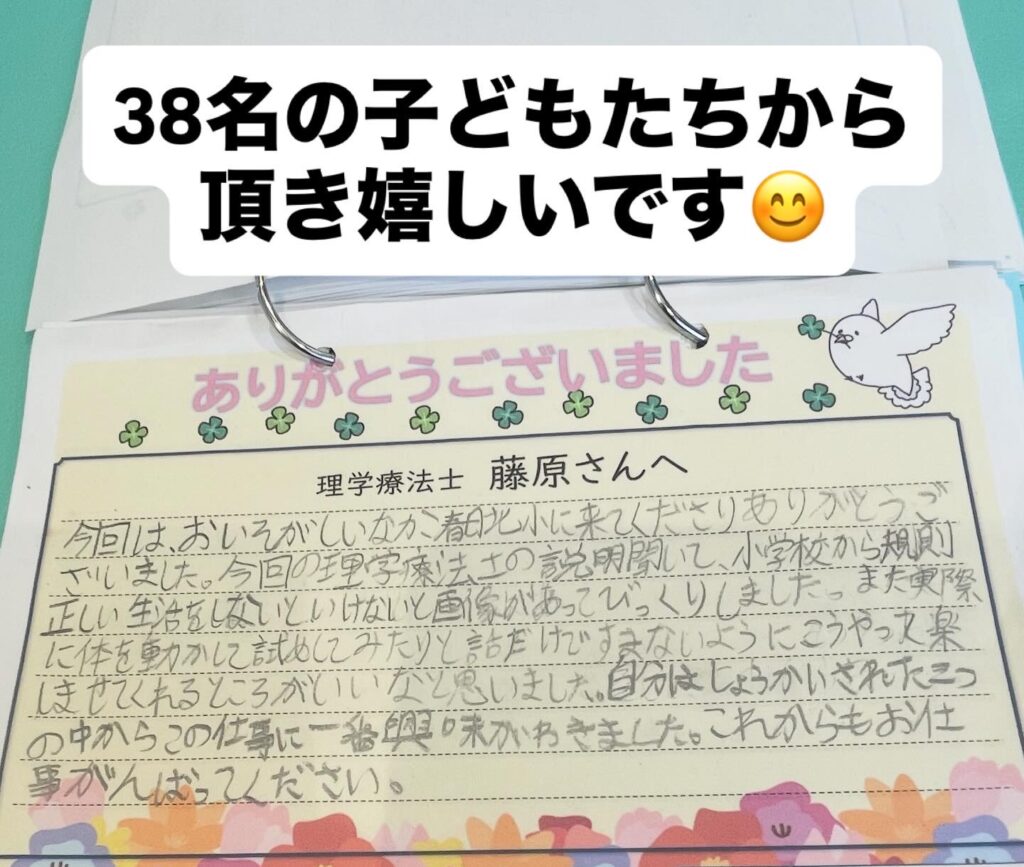 38名の子どもたちから
頂き嬉しいです😊
ありがとうございました
理学療法士 藤原さんへ
今回は、おいそがしいなか、春日北小に来てくださりありがとうご
ざいました。今回の理学療法士の説明聞いて、小学校から規則
正しい生活をしないといけないと画像があってびっくりしました。また実際
に体を動かして試めしてみたりと話だけですまないようにこうやって楽
しませてくれるところがいいなと思いました。自分はしょうかいされた三つ
の中からこの仕事に一番興味がわきました。これからもお仕
事がんばってください。